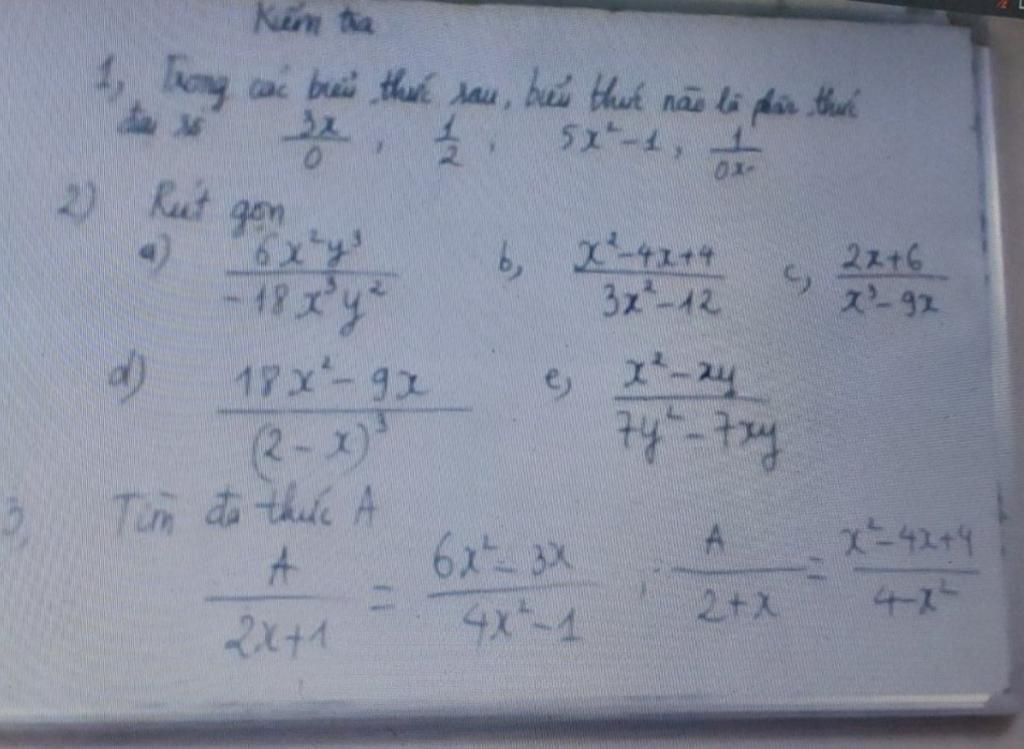 Kiểm tra
1, Trong các biểu thức sau, biểu thức nào là phân thức
đại số 3x/0, 1/2, 5x²-1, 1/0x
2) Rút gọn
a) 6x²y³/-18x³y² b, x²-4x+4/3x²-12 c, 2x+6/x³-9x
d) 18x²-9x/(2-x)³ e, x²-xy/7y²-7xy
3, Tìm đa thức A
A/2x+1 = 6x²-3x/4x²-1 ; A/2+x = x²-4x+4/4-x²